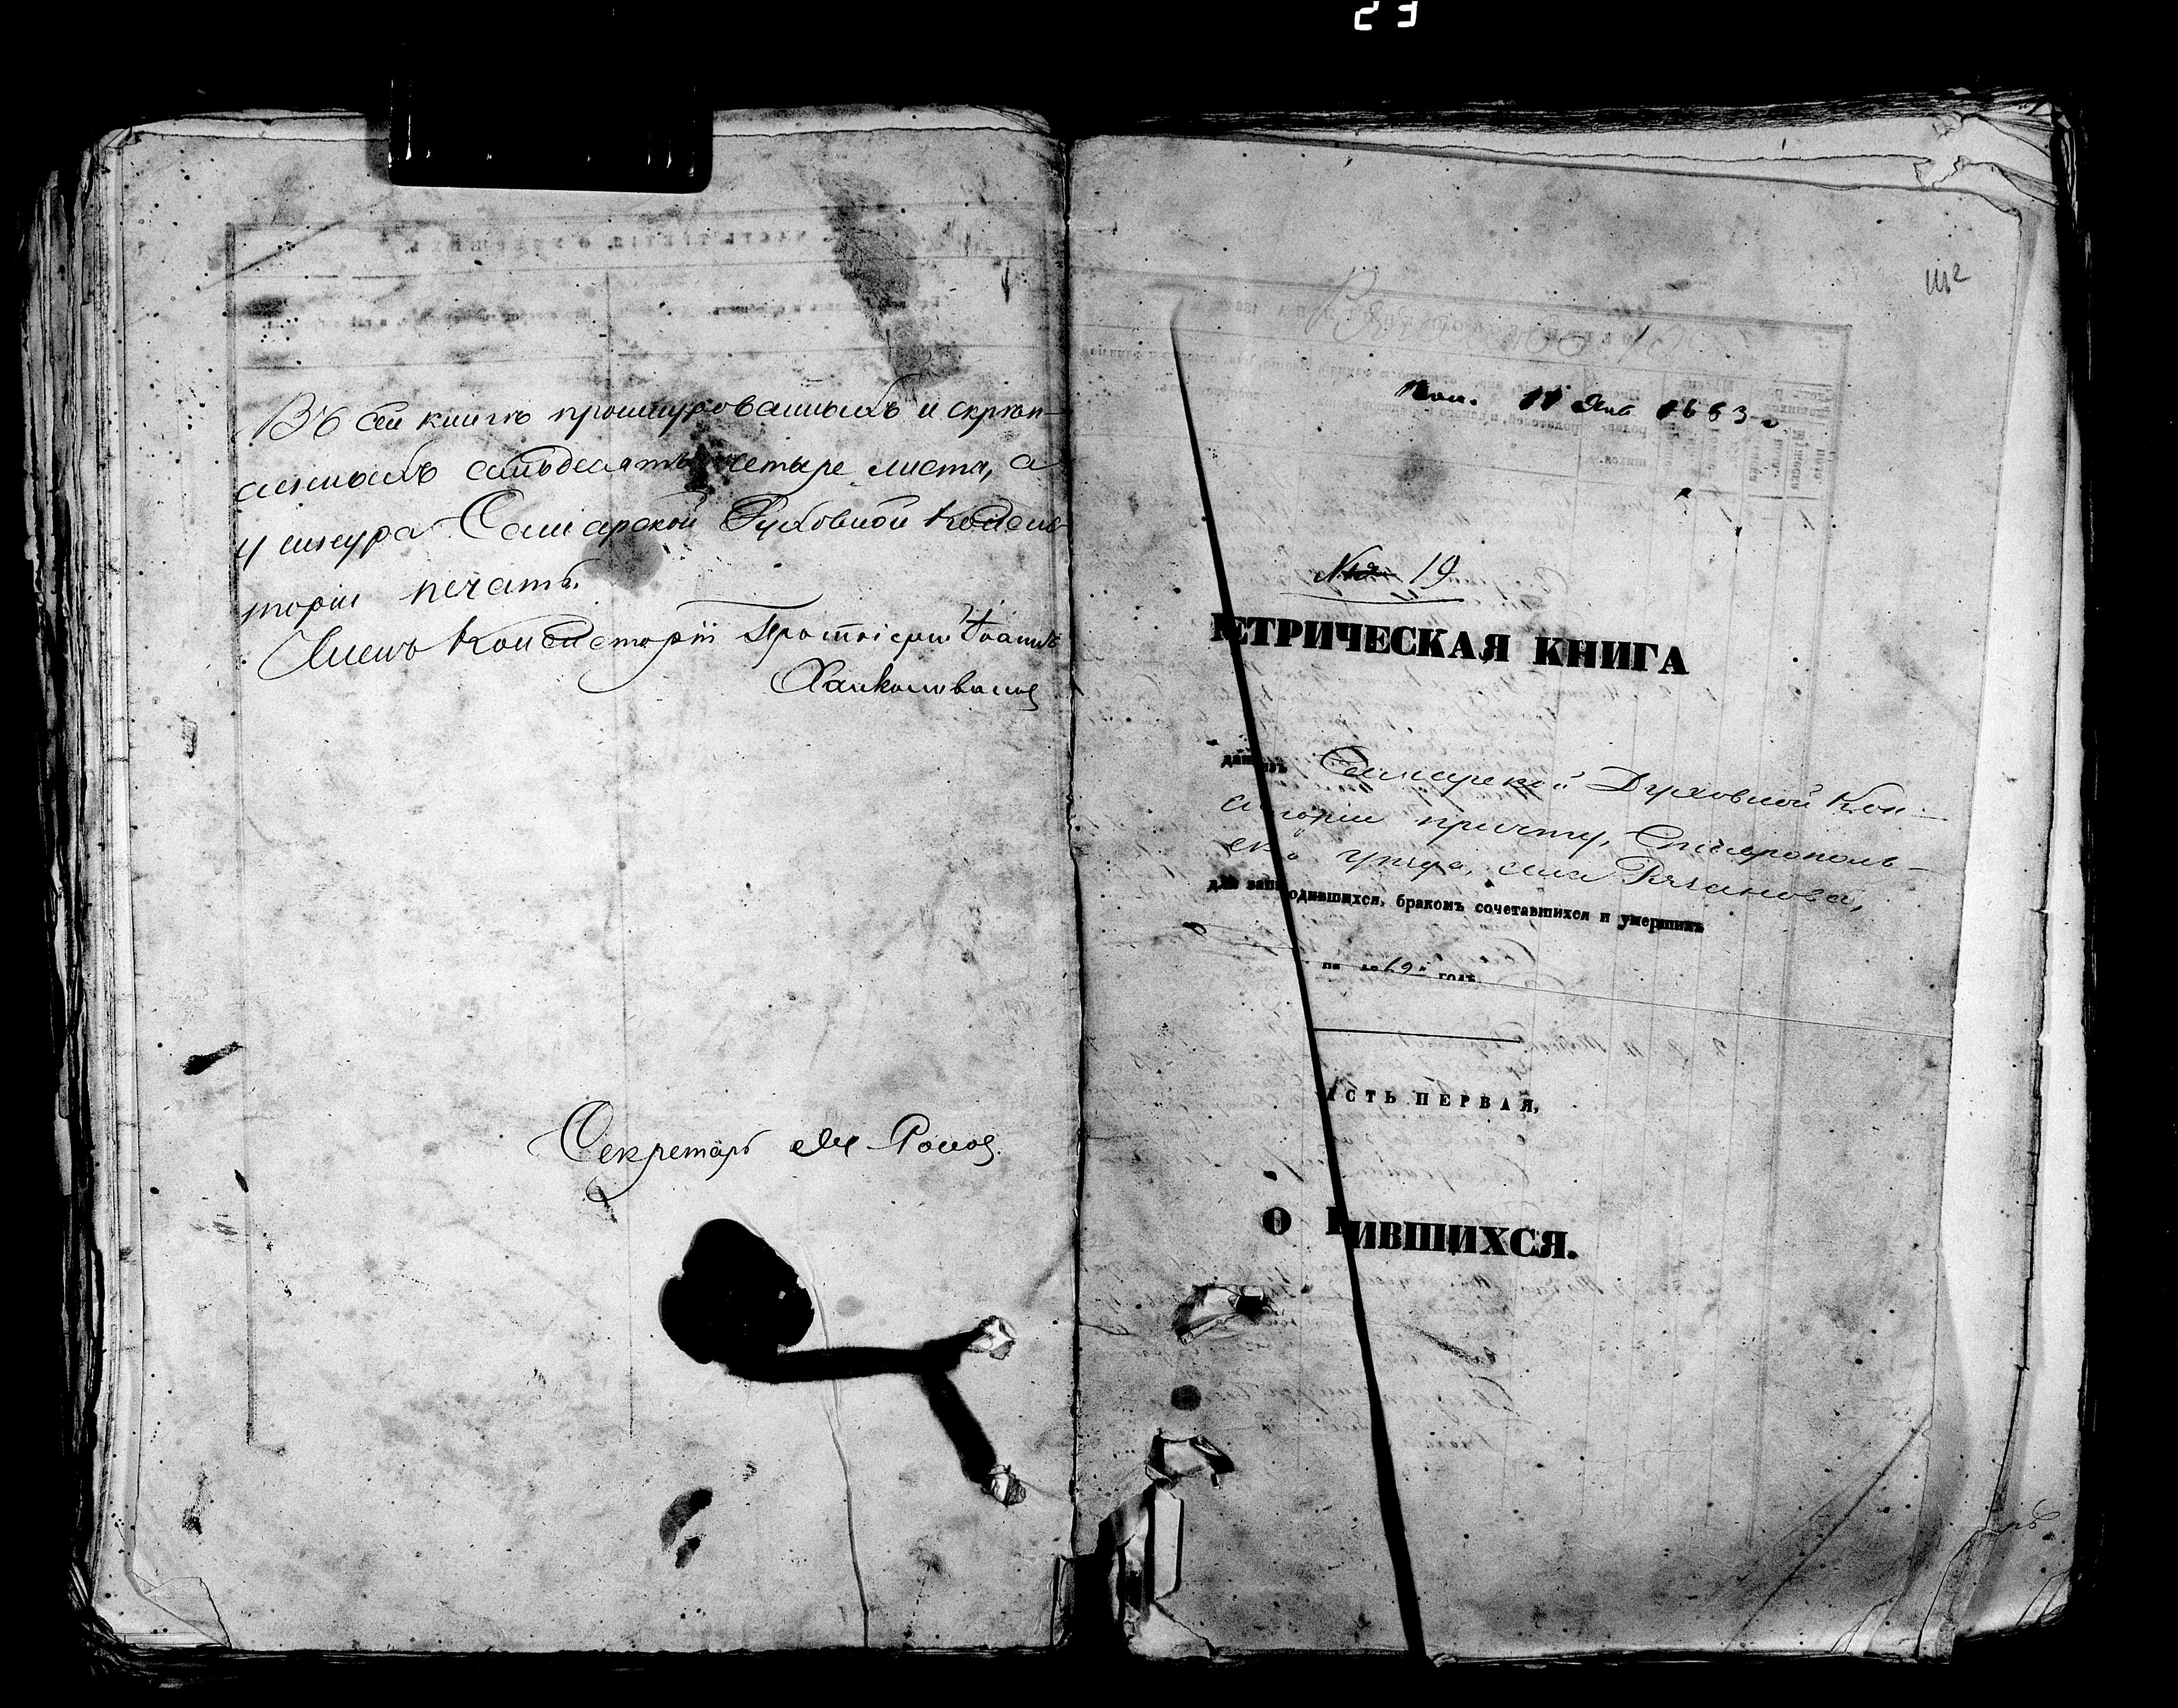 23
Въ сей книгѣ прошнурованныхъ и скрѣп-
ленныхъ семьдесятъ четыре листа, а
у шнура Самарской Духовной Консис-
торіи печать.
Членъ Консисторіи Протоіерей Іоаннъ
Халколивановъ
Секретарь
Рязаново
Пол. 11 Янв 1863
№ 19
ЕТРИЧЕСКАЯ КНИГА
Самарской Духовной Кон-
сторіи причту, Ставрополь-
ск о уѣзда, села Рязанова,
для зап одившихся, бракомъ сочетавшихся и умершихъ
на 18 годъ
СТЬ ПЕРВАЯ,
О ИВШИХСЯ.